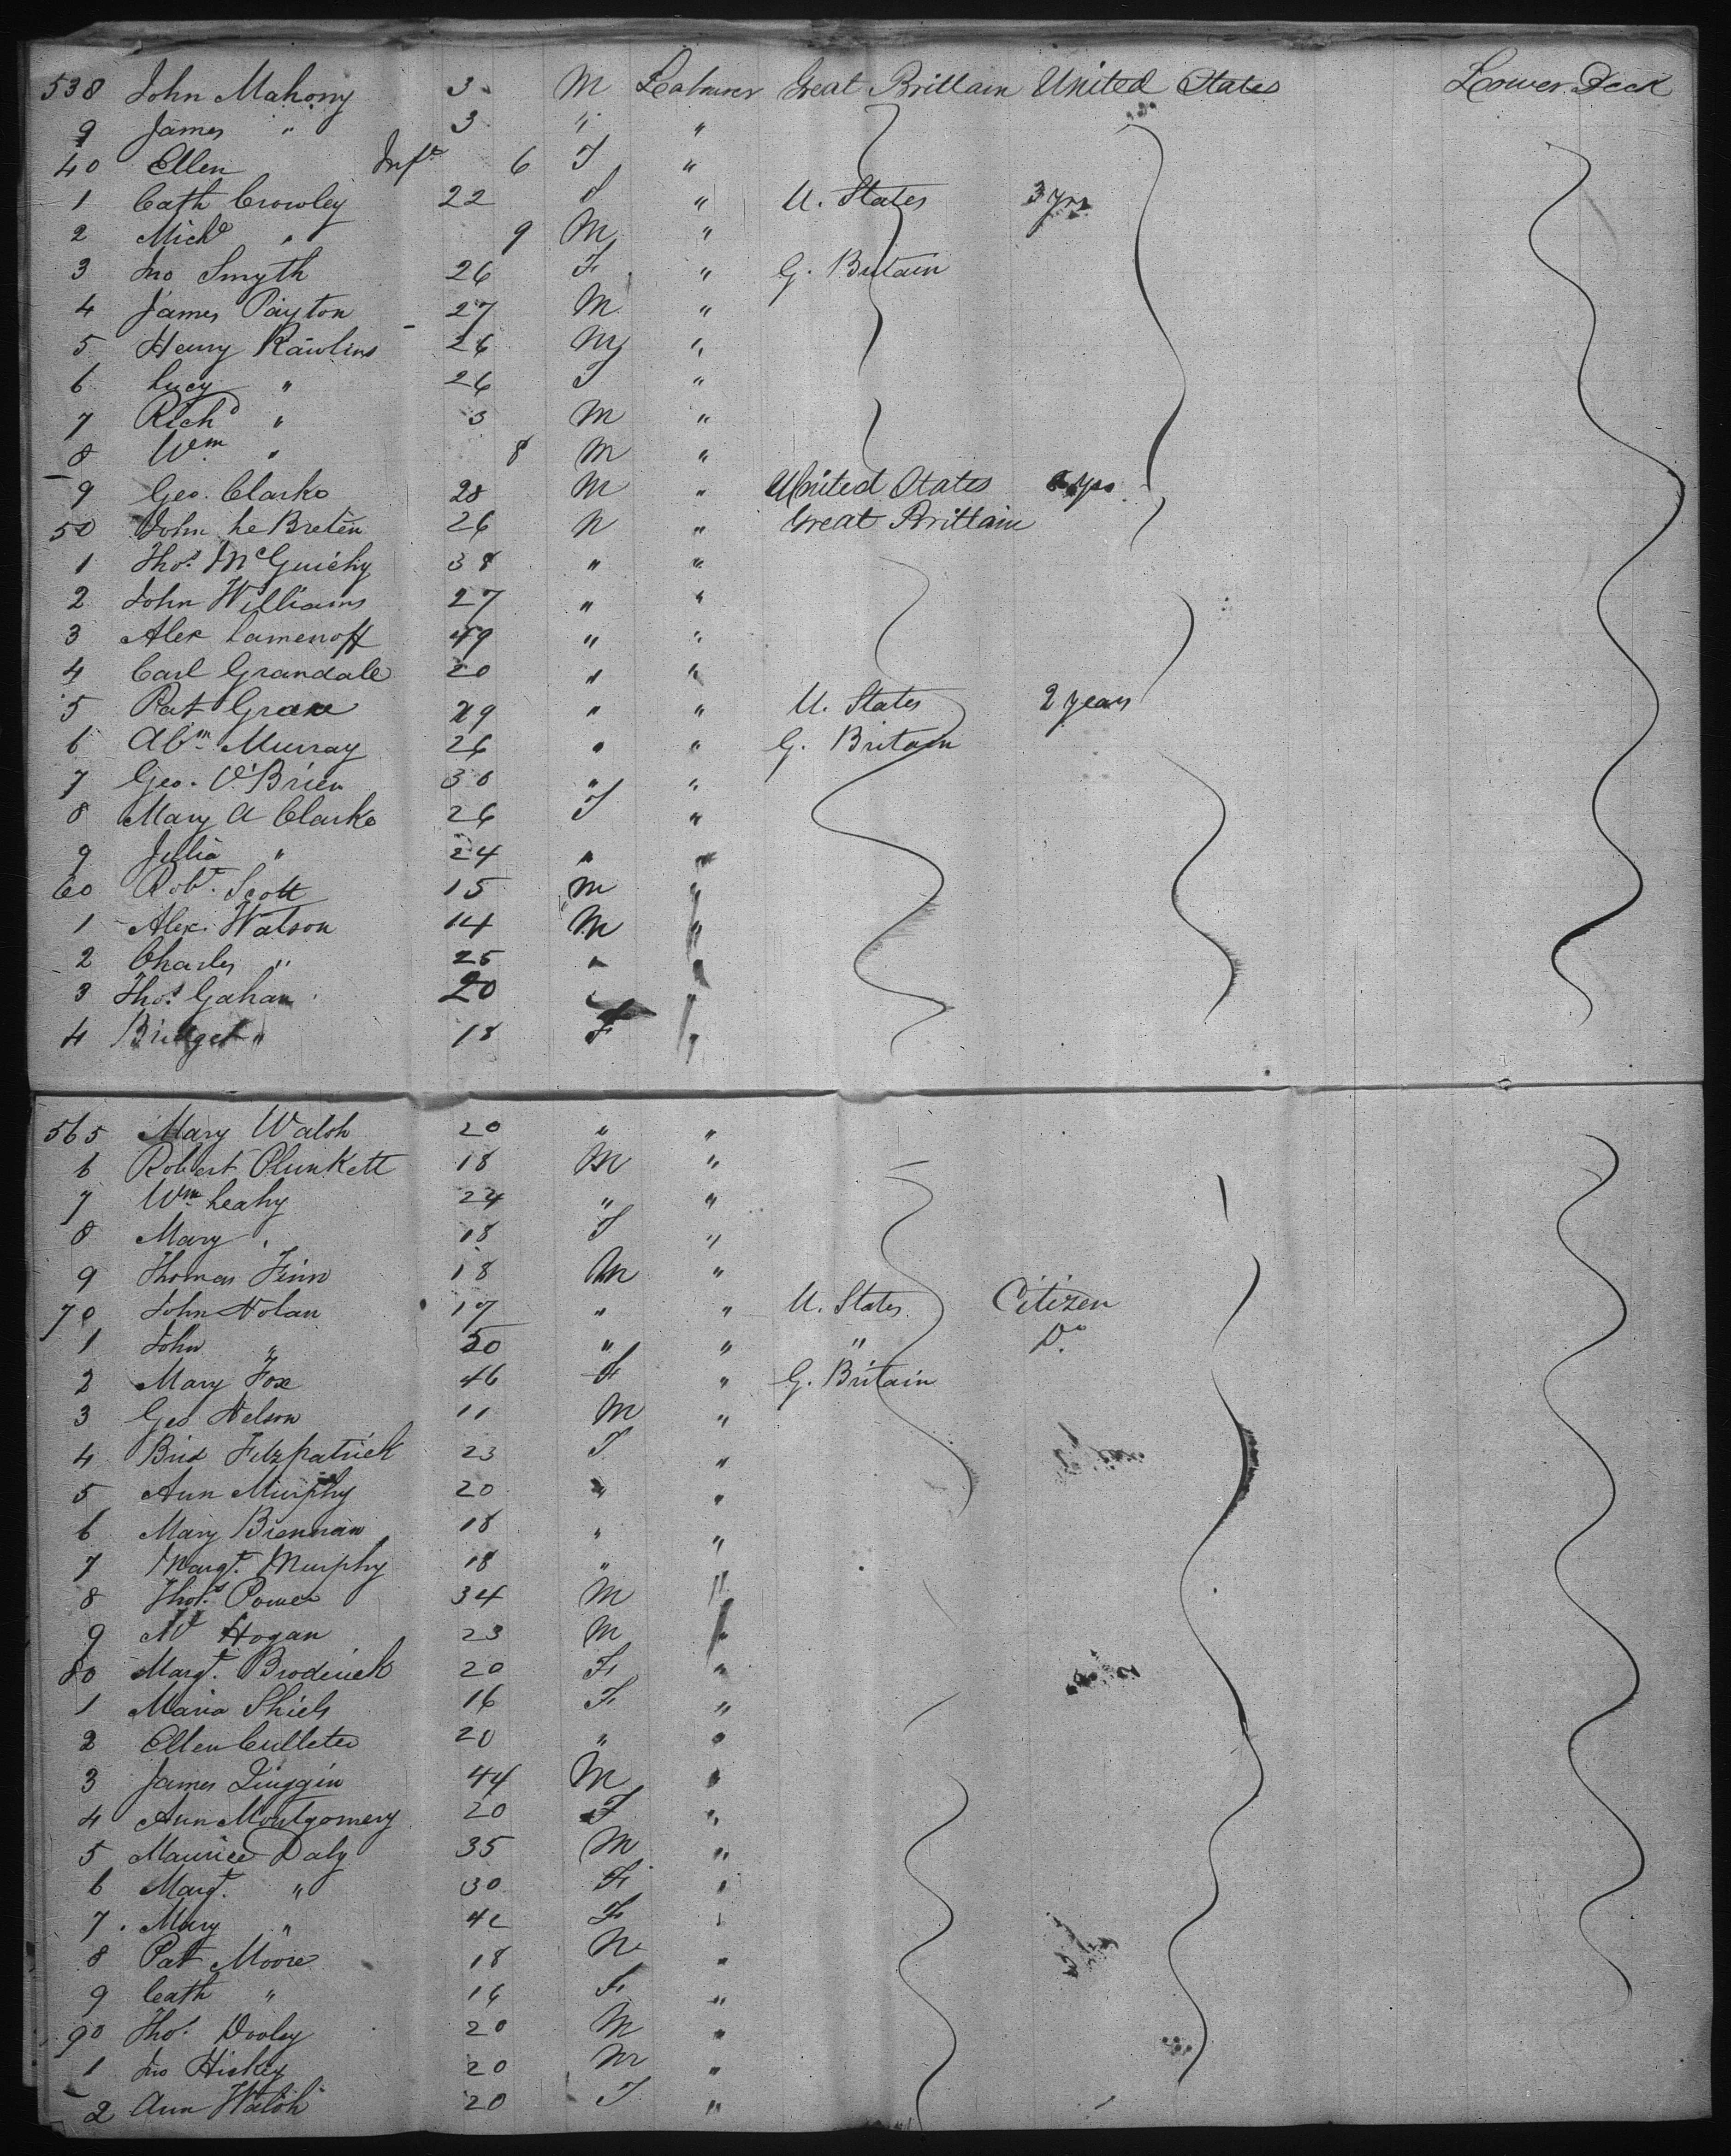 538 John Mahony 3 M Labourer Great Brittain United States Lower Deck
9 James " 3 " "
40 Ellen Inft 6 F "
1 Cath Crowley 22 F " U. States 3 yrs
2 Michl " 9 M "
3 Jno Smyth 26 F " G. Britain
4 James Payton 27 M "
5 Henry Rawlins 26 M "
6 Lucy " 26 F "
7 Richd " 3 M "
8 Wm " 8 M "
9 Geo. Clarke 28 M " United States yrs
50 John Le Breten 26 M " Great Brittain
1 Thos McGuichy 38 " "
2 John Williams 27 " "
3 Alex Lamenoff 49 " "
4 Carl Grandale 20 " "
5 Pat Grace 29 " " U. States 2 years
6 Abm Murray 26 " " G. Britain
7 Geo. O'Brien 30 " "
8 Mary A Clarke 26 F "
9 Julia " 24 " "
60 Robt. Scott 15 M "
1 Alex. Watson 14 M "
2 Charles " 25 " "
3 Thos Gahan 20 "
4 Bridget " 18 F "
565 Mary Walsh 20 " "
6 Robert Plunkett 18 M "
7 Wm Leahy 24 " "
8 Mary " 18 F "
9 Thomas Finn 18 M "
70 John Nolan 17 " " U. States Citizen
1 John " 50 " " " Do
2 Mary Fox 46 F " G. Britain
3 Geo Nelson 11 M "
4 Brid Fitzpatrick 23 F "
5 Ann Murphy 20 " "
6 Mary Brennan 18 " "
7 Margt. Murphy 18 " "
8 Thos. Power 34 M "
9 Hogan 23 M "
80 Margt. Broderick 20 F "
1 Maria Shiels 16 F "
2 Ellen Culleter 20 " "
3 James Quiggin 44 M "
4 Ann Montgomery 20 F "
5 Maurice Daly 35 M "
6 Margt. " 30 F "
7 Mary " F "
8 Pat Moore 18 M "
9 Cath " 16 F "
90 Thos. Dooley 20 M "
1 Jno Hickey 20 M "
2 Ann Walsh 20 F "